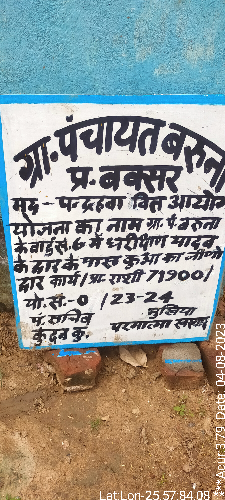 ग्रा. पंचायत बरुना
प्र. बक्सर
मद - पन्द्रहवा वित्त आयोग
योजना का नाम ग्रा. पं. बरुना
के वार्ड सं. 6 में धरीक्षण यादव
के द्वार के पास कुआं का जीर्णो
द्वार कार्य / प्रा. राशी 71900/
यो. सं.- 0 / 23-24
पं. सचिव मुखिया
कुंदन कु. परमात्मा
Lat Lon-25.57 84.08
***Acur 3.79 Date_04-08-2023